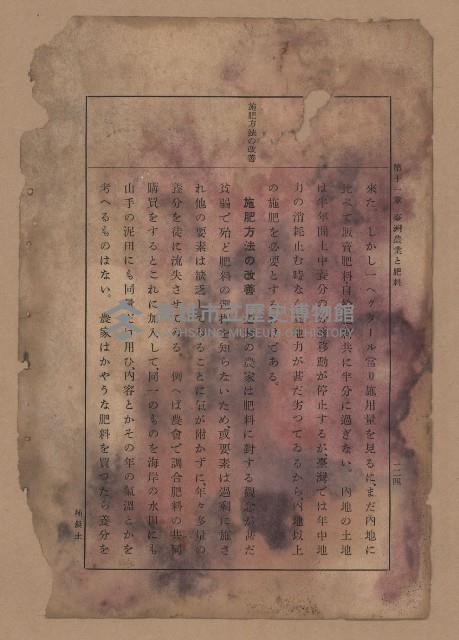 第十一章 臺灣農業と肥料
一二四
施肥方法の改善
來た。しかし一ヘクタール當り施用量を見るに、まだ內地に
比べて販賣肥料、自 共に半分に過ぎない。內地の土地
は半年間土中養分の 移動が停止するが、臺灣では年中地
力の消耗止む時な 地力が甚だ劣つてゐるから、內地以上
の施肥を必要とする である。
施肥方法の改善 の農家は肥料に對する觀念が甚だ
貧弱で殆ど肥料の 知らないため、或要素は過剩に施さ
れ他の要素は缺乏 ることに氣が附かずに、年々多量の
養分を徒に流失させてゐる。例へば農會で調合肥料の共同
購買をするとこれに加入して、同一のものを海岸の水田にも
山手の泥田にも同量 用ひ、內容とかその年の氣溫とかを
考へるものはない。農家はかやうな肥料を買つたら養分を
高雄市立歷史博物館
KAOHSIUNG MUSEUM OF HISTORY